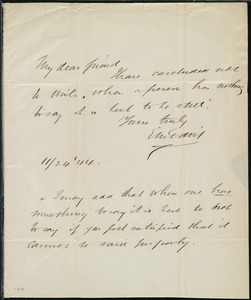 My dear friend
I have concluded not
to write, when a person has nothing
to say it is best to be still.
Yours truly
E M Davis
11/24 '44.
I may add that when one has
something to say it is best to
to say if you feel satisfied that it
cannot be said properly.